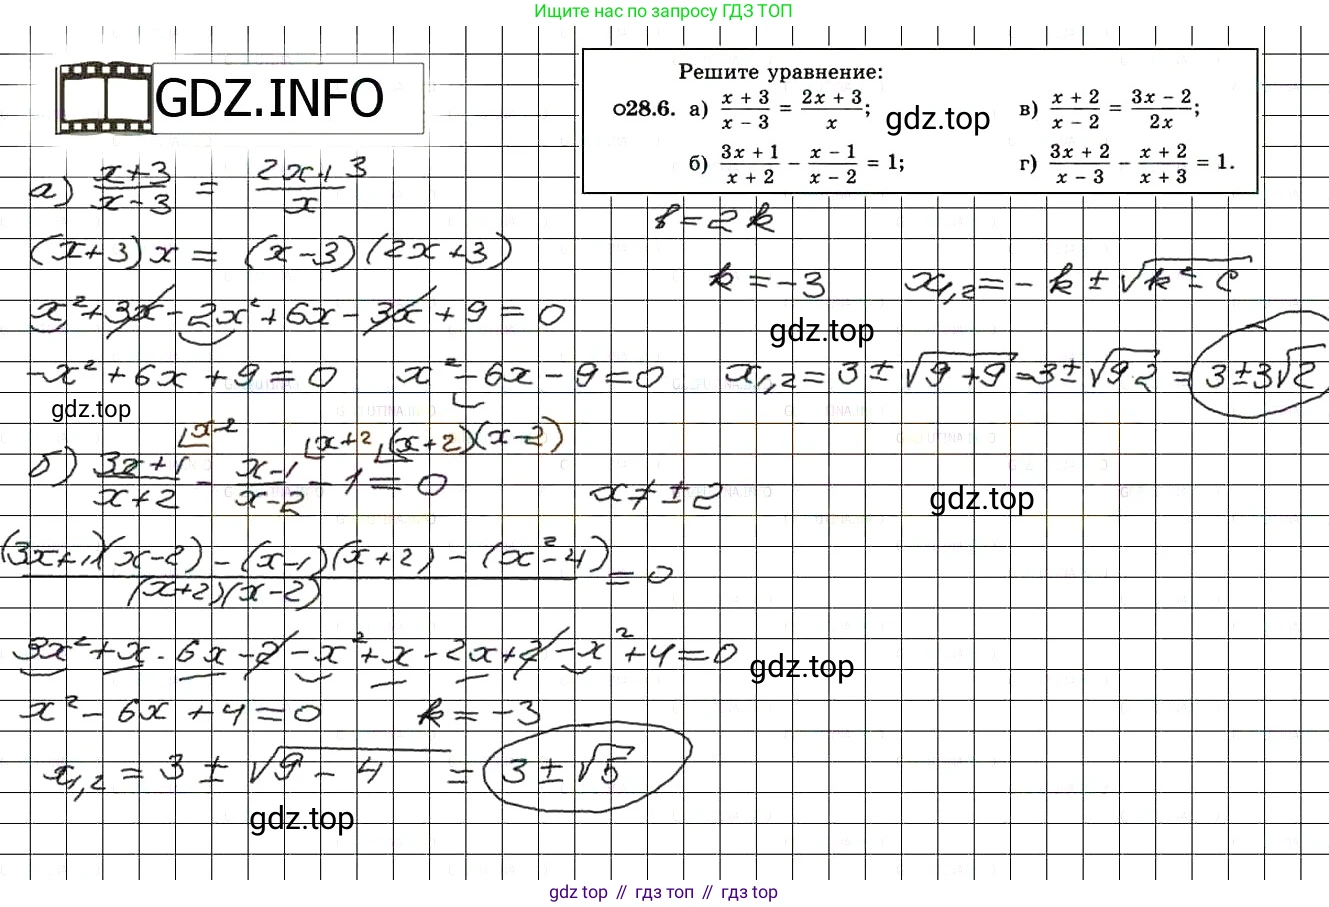 Ищите нас по запросу ГДЗ ТОП
GDZ.INFO
Решите уравнение:
o28.6. а) (x + 3)/(x − 3) = (2x + 3)/x; в) (x + 2)/(x − 2) = (3x − 2)/(2x);
gdz.top
б) (3x + 1)/(x + 2) − (x − 1)/(x − 2) = 1; г) (3x + 2)/(x − 3) − (x + 2)/(x + 3) = 1.
а) (x+3)/(x−3) = (2x+3)/x
b = 2k
(x+3)x = (x−3)(2x+3)
k = −3 x₁,₂ = −k ± √(k² − c)
x² + 3x − 2x² + 6x − 3x + 9 = 0
gdz.top
−x² + 6x + 9 = 0 x² − 6x − 9 = 0 x₁,₂ = 3 ± √(9+9) = 3 ± √(9·2) = 3 ± 3√2
gdz.top
x−2 x+2 (x+2)(x−2)
б) (3x+1)/(x+2) − (x−1)/(x−2) − 1 = 0 x ≠ ±2
gdz.top
((3x+1)(x−2) − (x−1)(x+2) − (x²−4))/((x+2)(x−2)) = 0
3x² + x − 6x − 2 − x² + x − 2x + 2 − x² + 4 = 0
gdz.top
x² − 6x + 4 = 0 k = −3
x₁,₂ = 3 ± √(9 − 4) = 3 ± √5
gdz.top
gdz top // гдз топ // gdz top